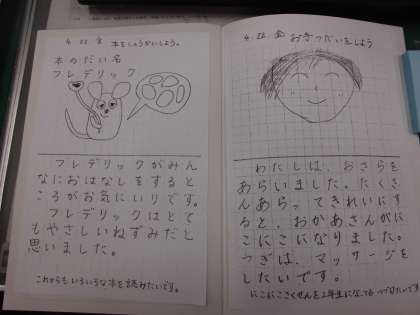 4.22 金 本をしょうかいしよう。
本のだい名
フレデリック
フレデリックがみん
なにおはなしをすると
ころがお気にいりです。
フレデリックはとて
もやさしいねずみだと
思いました。
これからもいろいろな本を読みたいです。
4.22 金 お手つだいをしよう
わたしは、おさらを
あらいました。たくさ
んあらってきれいにす
ると、おかあさんがに
こにこになりました。
つぎは、マッサージを
したいです。
にこにこさくせんを2年生になっても つづけたいです